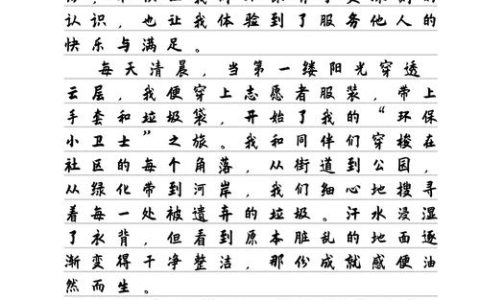 认识，也让我体验到了服务他人的
快乐与满足。
每天清晨，当第一缕阳光穿透
云层，我便穿上志愿者服装，带上
手套和垃圾袋，开始了我的“环保
小卫士”之旅。我和同伴们穿梭在
社区的每个角落，从街道到公园，
从绿化带到河岸，我们细心地搜寻
着每一处被遗弃的垃圾。汗水浸湿
了衣背，但看到原本脏乱的地面逐
渐变得干净整洁，那份成就感便油
然而生。